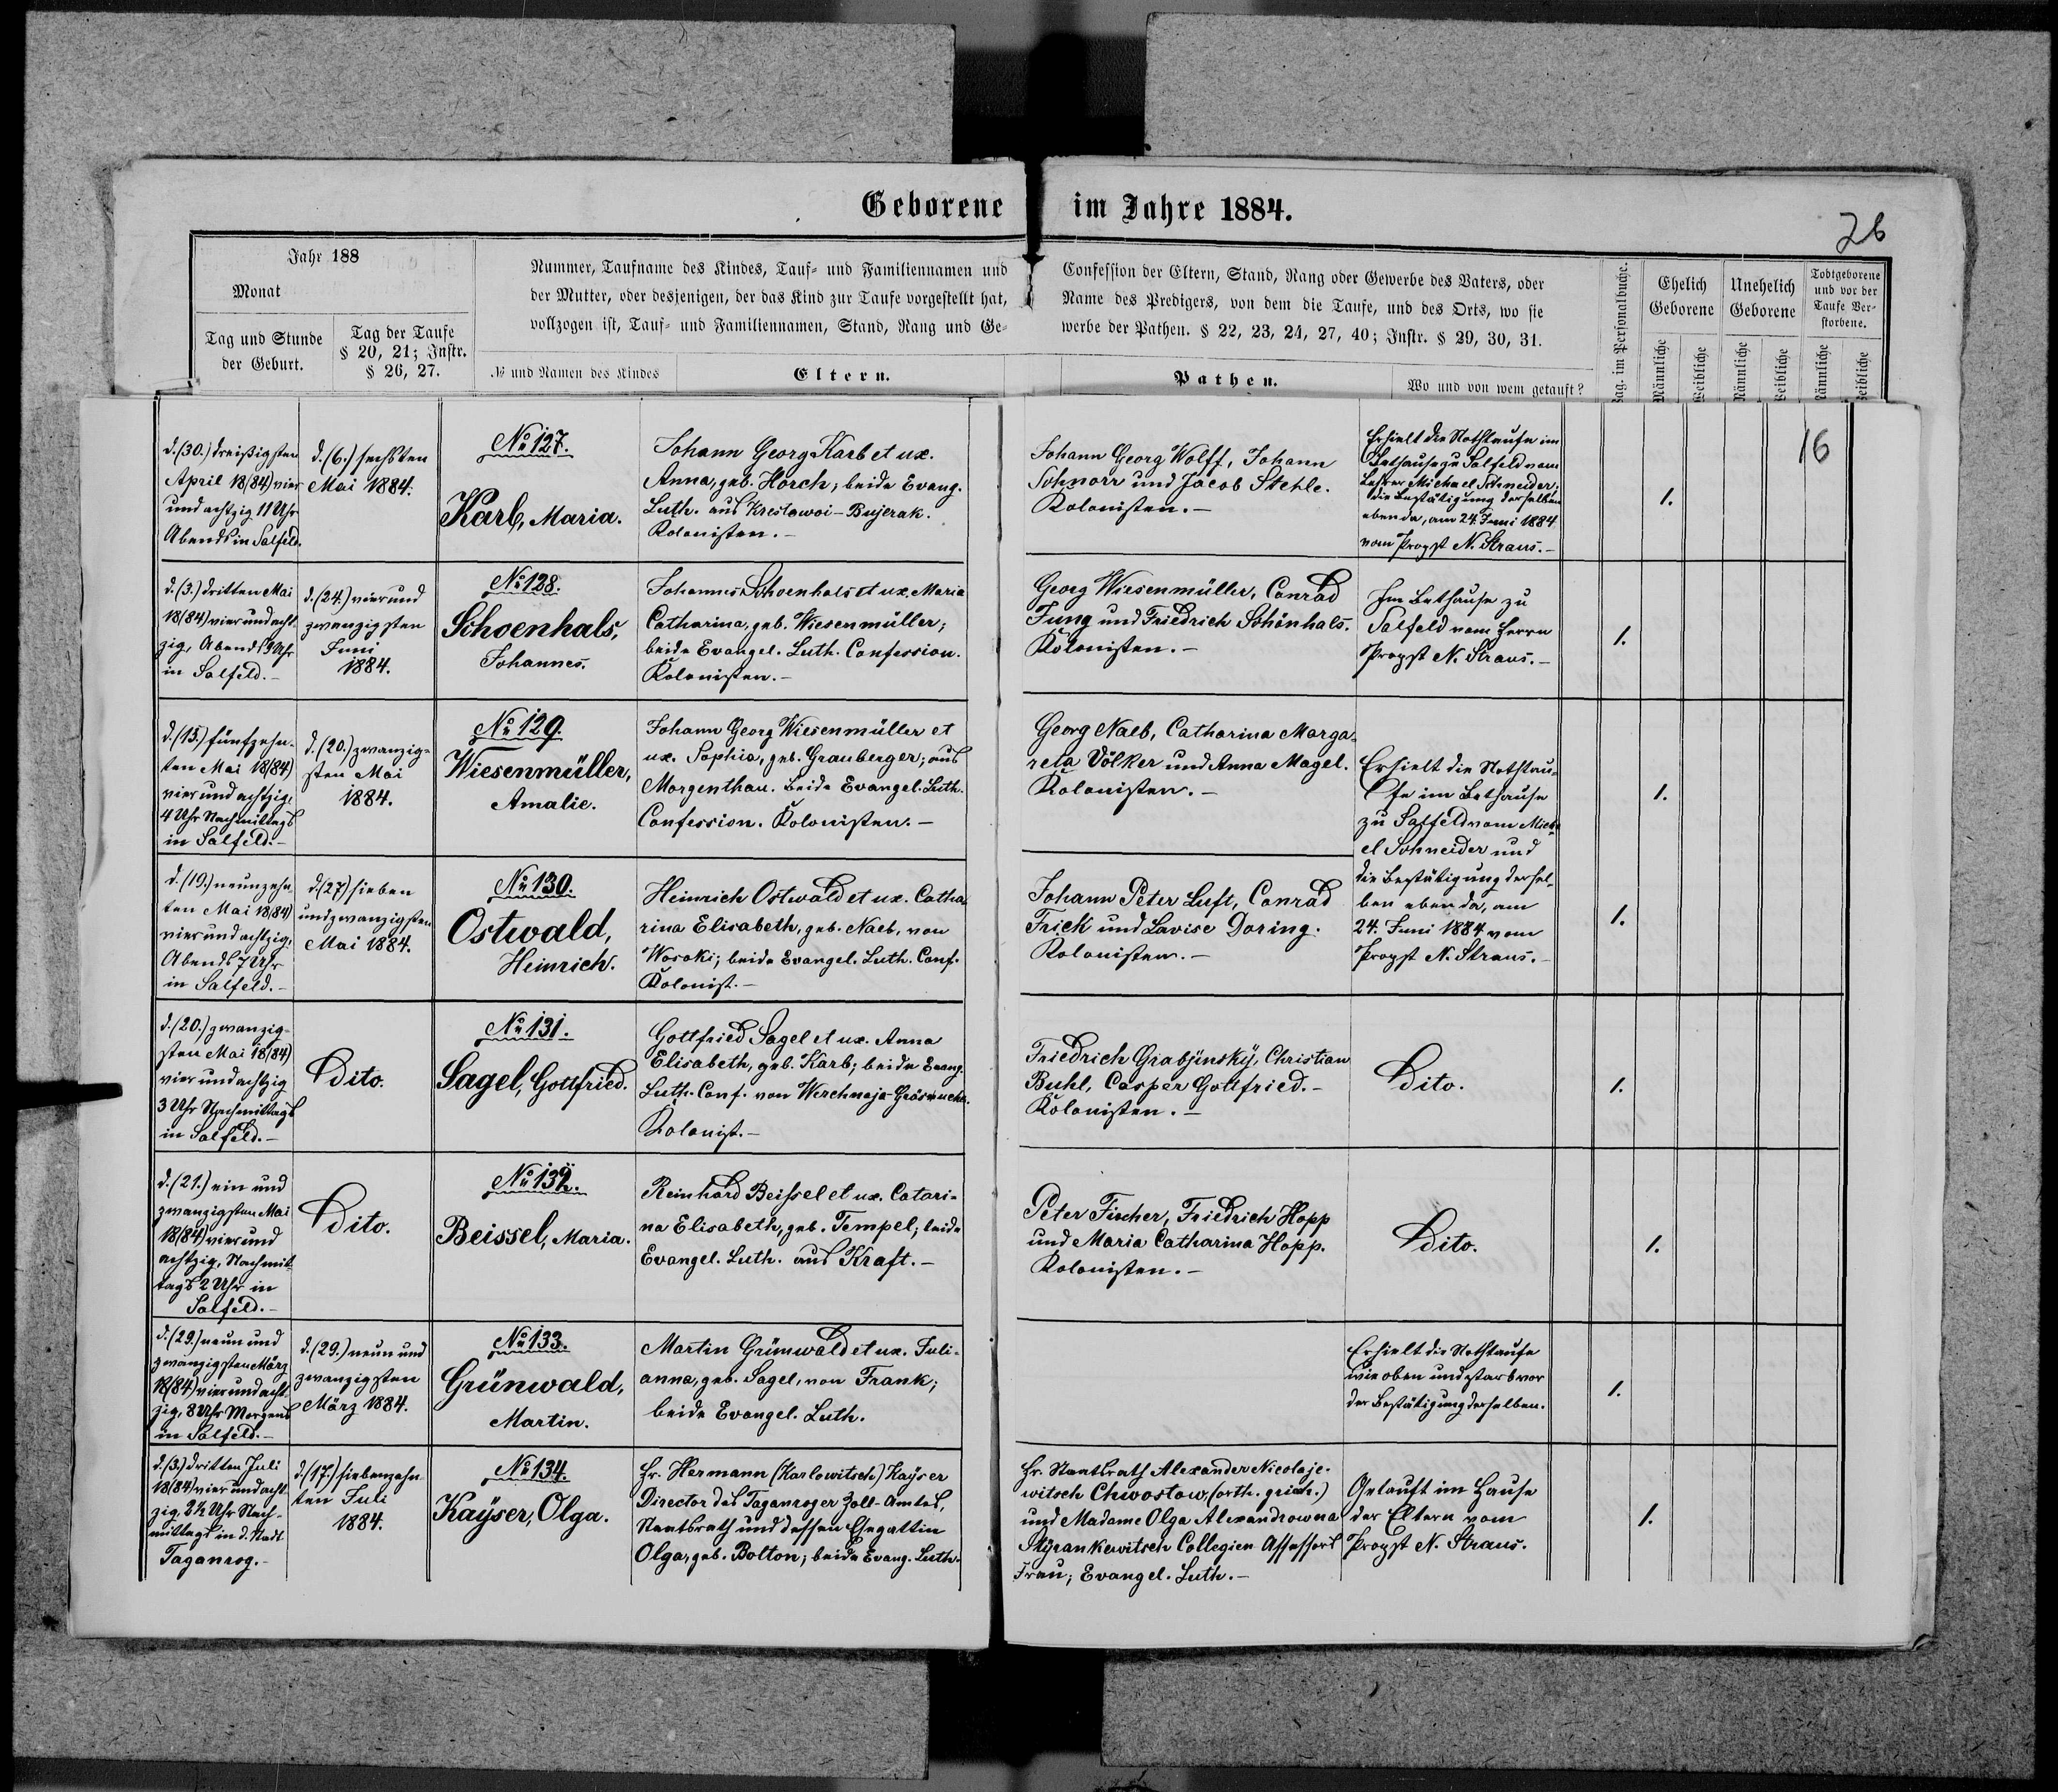 Geborene im Jahre 1884.
26
Jahr 188
Monat
Tag und Stunde
der Geburt.
Tag der Taufe
§ 20, 21; Instr.
§ 26, 27.
Nummer, Taufname des Kindes, Tauf- und Familiennamen und
der Mutter, oder desjenigen, der das Kind zur Taufe vorgestellt hat,
vollzogen ist, Tauf- und Familiennamen, Stand, Rang und Ge-
№ und Namen des Kindes
Eltern.
Confession der Eltern, Stand, Rang oder Gewerbe des Vaters, oder
Name des Predigers, von dem die Taufe, und des Orts, wo sie
werbe der Pathen. § 22, 23, 24, 27, 40; Instr. § 29, 30, 31.
Pathen.
Wo und von wem getauft?
Pag. im Personalbuche.
Ehelich
Geborene
Unehelich
Geborene
Todtgeborene
und vor der
Taufe Ver-
storbene.
Männliche
Weibliche
Männliche
Weibliche
Männliche
Weibliche
16
d. (30.) dreißigsten
April 18(84) vier
und achtzig 11 Uhr
Abends in Salfeld.
d. (6.) sechsten
Mai 1884.
№ 127.
Karb, Maria.
Johann Georg Karb et ux.
Anna, geb. Horch; beide Evang.
Luth. aus Krestowoi-Bujerak.
Kolonisten.-
Johann Georg Wolff, Johann
Schnorr und Jacob Stehle.
Kolonisten.-
Erhielt die Nothtaufe im
Bethause zu Salfeld vom
Lehrer Michael Schneider;
die Bestätigung derselben
ebenda, am 24. Juni 1884
vom Propst N. Straus.-
1.
d. (3.) dritten Mai
18(84) vier und acht-
zig, Abends 9 Uhr
in Salfeld.-
d. (24.) vier und
zwanzigsten
Juni
1884.
№ 128.
Schoenhals,
Johannes.
Johannes Schoenhals et ux. Maria
Catharina, geb. Wiesenmüller;
beide Evangel. Luth. Confession.
Kolonisten.-
Georg Wiesenmüller, Conrad
Jung und Friedrich Schönhals.
Kolonisten.-
Im Bethause zu
Salfeld vom Herrn
Propst N. Straus.-
1.
d. (15.) fünfzehn-
ten Mai 18(84)
vier und achtzig,
4 Uhr Nachmittags
in Salfeld.-
d. (20.) zwanzig-
sten Mai
1884.
№ 129.
Wiesenmüller,
Amalie.
Johann Georg Wiesenmüller et
ux. Sophia, geb. Grauberger; aus
Morgenthau. beide Evangel. Luth.
Confession. Kolonisten.-
Georg Naeb, Catharina Marga-
reta Völker und Anna Magel.
Kolonisten.-
Erhielt die Nothtau-
fe im Bethause
zu Salfeld vom Micha-
el Schneider und
die Bestätigung dersel-
ben ebenda, am
24. Juni 1884 vom
Propst N. Straus.-
1.
d. (19.) neunzehn-
ten Mai 18(84)
vier und achtzig,
Abends 7 Uhr
in Salfeld.-
d. (27) sieben
und zwanzigsten
Mai 1884.
№ 130.
Ostwald,
Heinrich.
Heinrich Ostwald et ux. Catha-
rina Elisabeth, geb. Naeb, von
Wosoki; beide Evangel. Luth. Conf.
Kolonist.-
Johann Peter Luft, Conrad
Frick und Lavise Doring.
Kolonisten.-
1.
d. (20.) zwanzig-
sten Mai 18(84)
vier und achtzig
3 Uhr Nachmittags
in Salfeld.-
Dito.
№ 131.
Sagel, Gottfried.
Gottfried Sagel et ux. Anna
Elisabeth, geb. Karb; beide Evang.
Luth. Conf. von Werchnaja-
Kolonist.-
Friedrich Grabjinsky, Christian
Buhl, Casper Gottfried.-
Kolonisten.-
Dito.
1.
d. (21.) ein und
zwanzigsten Mai
18(84) vier und
achtzig, Nachmit-
tags 2 Uhr in
Salfeld.-
Dito.
№ 132.
Beissel, Maria.
Reinhard Beissel et ux. Catari-
na Elisabeth, geb. Tempel; beide
Evangel. Luth. aus Kraft.-
Peter Fischer, Friedrich Hopp
und Maria Catharina Hopp.
Kolonisten.-
Dito.
1.
d. (29.) neun und
zwanzigsten März
18(84) vier und acht-
zig, 8 Uhr Morgens
in Salfeld.-
d. (29.) neun und
zwanzigsten
März 1884.
№ 133.
Grünwald,
Martin.
Martin Grünwald et ux. Juli-
anna, geb. Sagel, von Frank;
beide Evangel. Luth.
Erhielt die Nothtaufe
wie oben und starb vor
der Bestätigung derselben.
1.
d. (3.) dritten Juli
18(84) vier und acht-
zig, 2½ Uhr Nach-
mittags in d. Stadt
Taganrog.-
d. (17.) siebenzehn-
ten Juli
1884.
№ 134.
Kayser, Olga.
Hr. Hermann (Karlowitsch) Kayser
Director des Taganroger Zoll-Amtes,
Staatsrath und dessen Ehegattin
Olga, geb. Bolton; beide Evang. Luth.
Hr. Staatsrath Alexander Nicolaje-
witsch Chwostow, (orth. griech.)
und Madame Olga Alexandrowna
Skyrankewitsch Collegien Assessors
Frau; Evangel. Luth.-
Getauft im Hause
der Eltern vom
Propst N. Straus.
1.